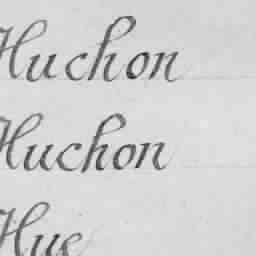 Huchon
Huchon
Hue